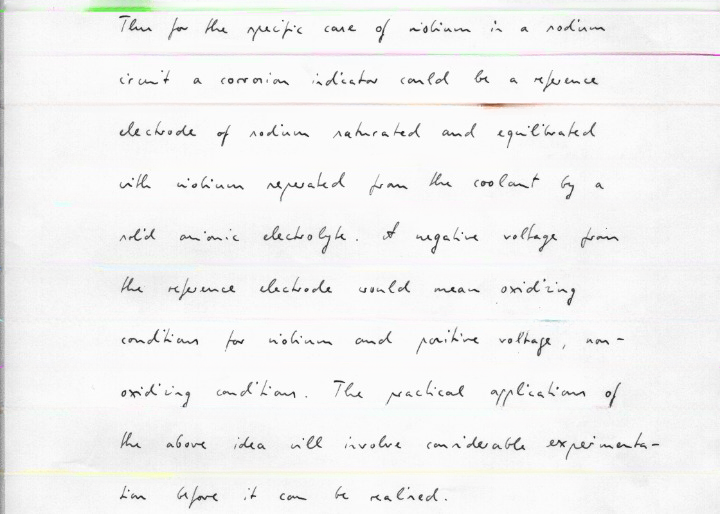 Thus for the specific case of niobium in a sodium
circuit a corrosion indicator could be a reference
electrode of sodium saturated and equilibrated
with niobium seperated from the coolant by a
solid anionic electrolyte. A negative voltage from
the reference electrode would mean oxidizing
conditions for niobium and positive voltage, non-
oxidizing conditions. The practical applications of
the above idea will involve considerable experimenta-
tion before it can be realised.